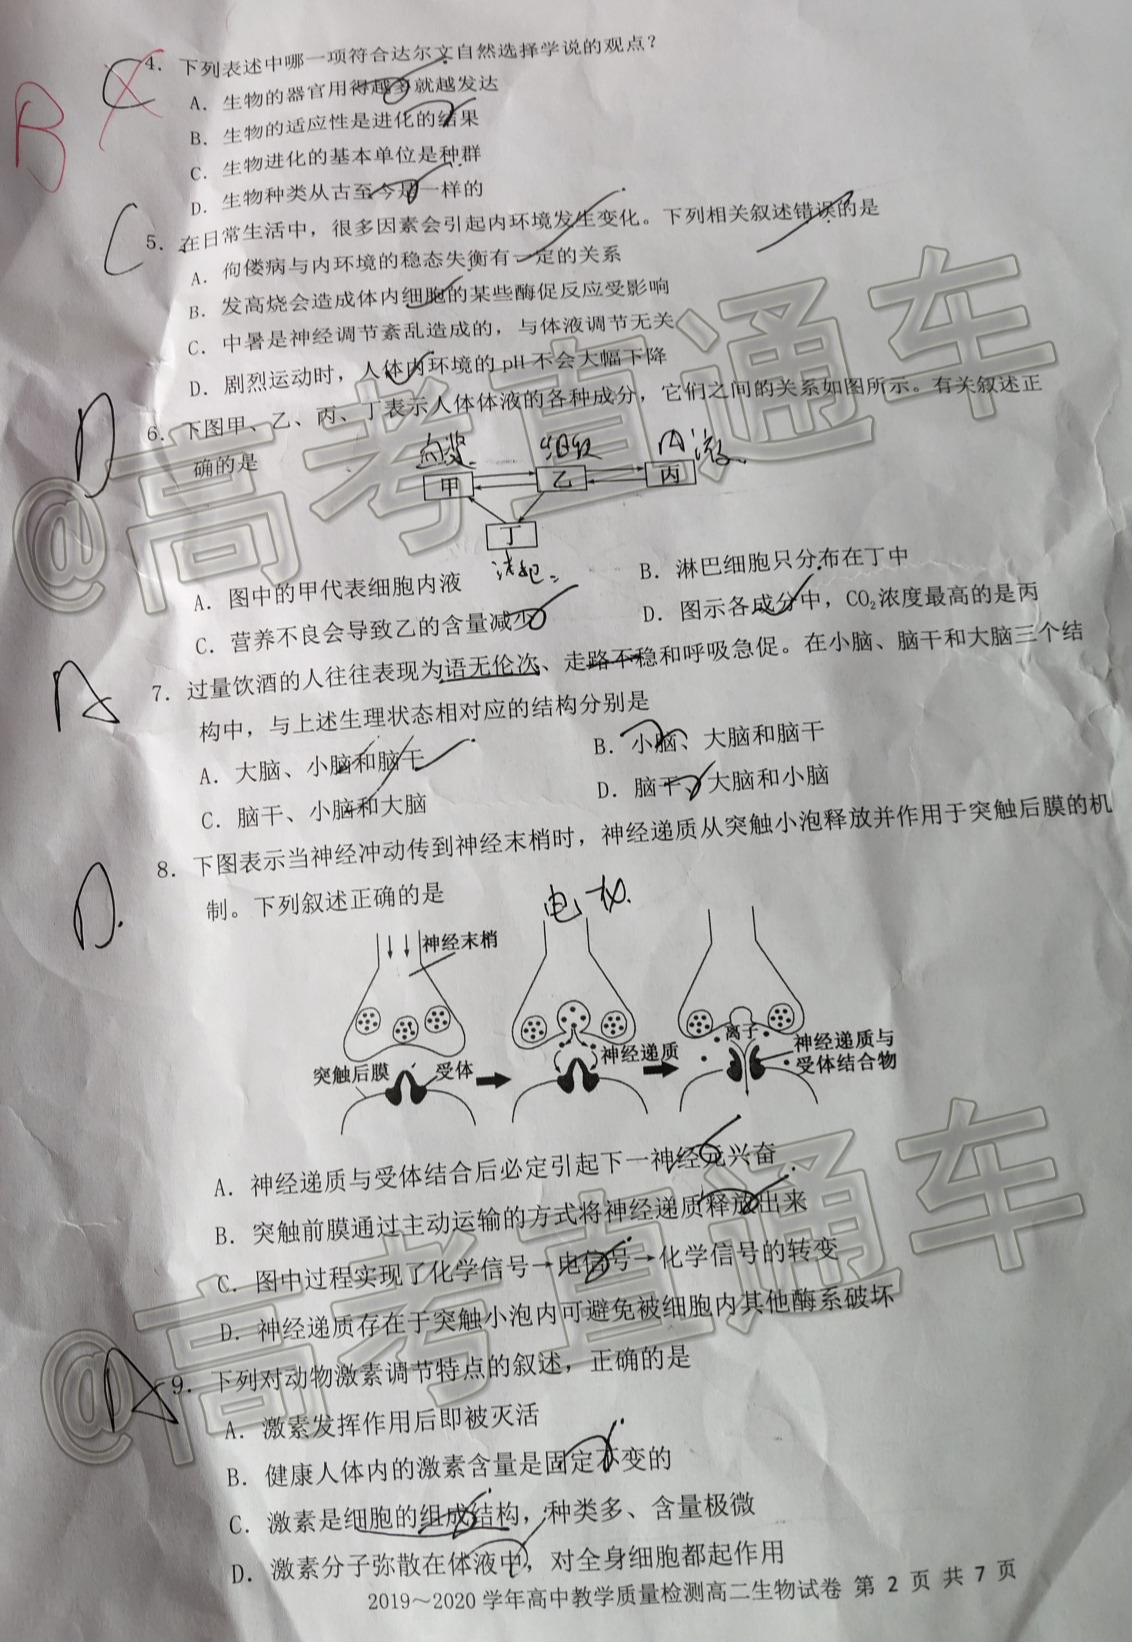 B
C
4. 下列表述中哪一项符合达尔文自然选择学说的观点？
A. 生物的器官用得越多就越发达
B. 生物的适应性是进化的结果
C. 生物进化的基本单位是种群
D. 生物种类从古至今是一样的
C
5. 在日常生活中，很多因素会引起内环境发生变化。下列相关叙述错误的是
A. 佝偻病与内环境的稳态失衡有一定的关系
B. 发高烧会造成体内细胞的某些酶促反应受影响
C. 中暑是神经调节紊乱造成的，与体液调节无关
D. 剧烈运动时，人体内环境的 pH 不会大幅下降
D
6. 下图甲、乙、丙、丁表示人体体液的各种成分，它们之间的关系如图所示。有关叙述正
确的是
血浆 组织 内液
甲 乙 丙
丁
A. 图中的甲代表细胞内液
B. 淋巴细胞只分布在丁中
C. 营养不良会导致乙的含量减少
D. 图示各成分中，CO₂浓度最高的是丙
A
7. 过量饮酒的人往往表现为语无伦次、走路不稳和呼吸急促。在小脑、脑干和大脑三个结
构中，与上述生理状态相对应的结构分别是
A. 大脑、小脑和脑干
B. 小脑、大脑和脑干
C. 脑干、小脑和大脑
D. 脑干、大脑和小脑
D.
8. 下图表示当神经冲动传到神经末梢时，神经递质从突触小泡释放并作用于突触后膜的机
制。下列叙述正确的是
神经末梢
突触后膜 受体
神经递质
离子
神经递质与
受体结合物
A. 神经递质与受体结合后必定引起下一神经元兴奋
B. 突触前膜通过主动运输的方式将神经递质释放出来
C. 图中过程实现了化学信号→电信号→化学信号的转变
D. 神经递质存在于突触小泡内可避免被细胞内其他酶系破坏
A
9. 下列对动物激素调节特点的叙述，正确的是
A. 激素发挥作用后即被灭活
B. 健康人体内的激素含量是固定不变的
C. 激素是细胞的组成结构，种类多、含量极微
D. 激素分子弥散在体液中，对全身细胞都起作用
2019～2020 学年高中教学质量检测高二生物试卷 第 2 页 共 7 页
@高考直通车
@高考直通车